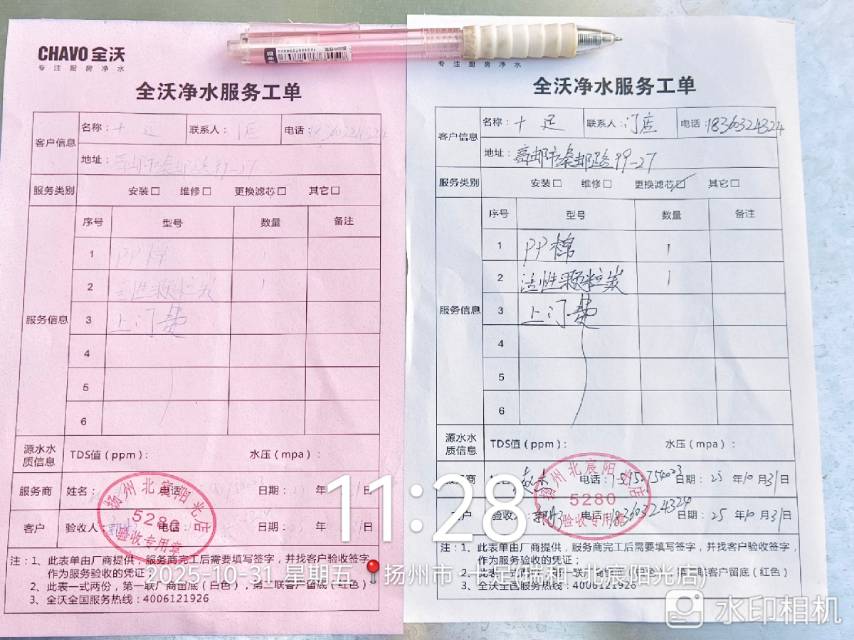 CHAVO 全沃
专注厨房净水
全沃净水服务工单
客户信息
名称：十足
联系人：门店
电话：
地址：高邮市秦邮路99-27
服务类别 安装□ 维修□ 更换滤芯□ 其它□
服务信息
序号 型号 数量 备注
1 PP棉 1
2 活性颗粒炭 1
3 上门费
4
5
6
源水水质信息 TDS值（ppm）： 水压（mpa）：
服务商 姓名： 电话 日期： 年
客户 验收人：
扬州北宸阳光店
5280
验收专用章
注：1、此表单由厂商提供，服务商完工后需要填写签字，并找客户验收签字，
作为服务验收的凭证
2、此表一式两份，第一联厂商留底（白色），第二联客户留底（红色）
3、全沃全国服务热线：4006121926
专注厨房净水
全沃净水服务工单
客户信息
名称：十足
联系人：门店
电话：18360324324
地址：高邮市秦邮路99-27
服务类别 安装□ 维修□ 更换滤芯☑ 其它□
服务信息
序号 型号 数量 备注
1 PP棉 1
2 活性颗粒炭 1
3 上门费
4
5
6
源水水质信息 TDS值（ppm）： 水压（mpa）：
电话： 日期：25年10月31日
客户 验收人： 18360324324 日期：25年10月31日
扬州北宸阳光店
5280
验收专用章
注：1、此表单由厂商提供，服务商完工后需要填写签字，并找客户验收签字，
作为服务验收的凭证；
客户留底（红色）
3、全沃全国服务热线：4006121926
11:28
2025-10-31 星期五 扬州市
北宸阳光店)
水印相机